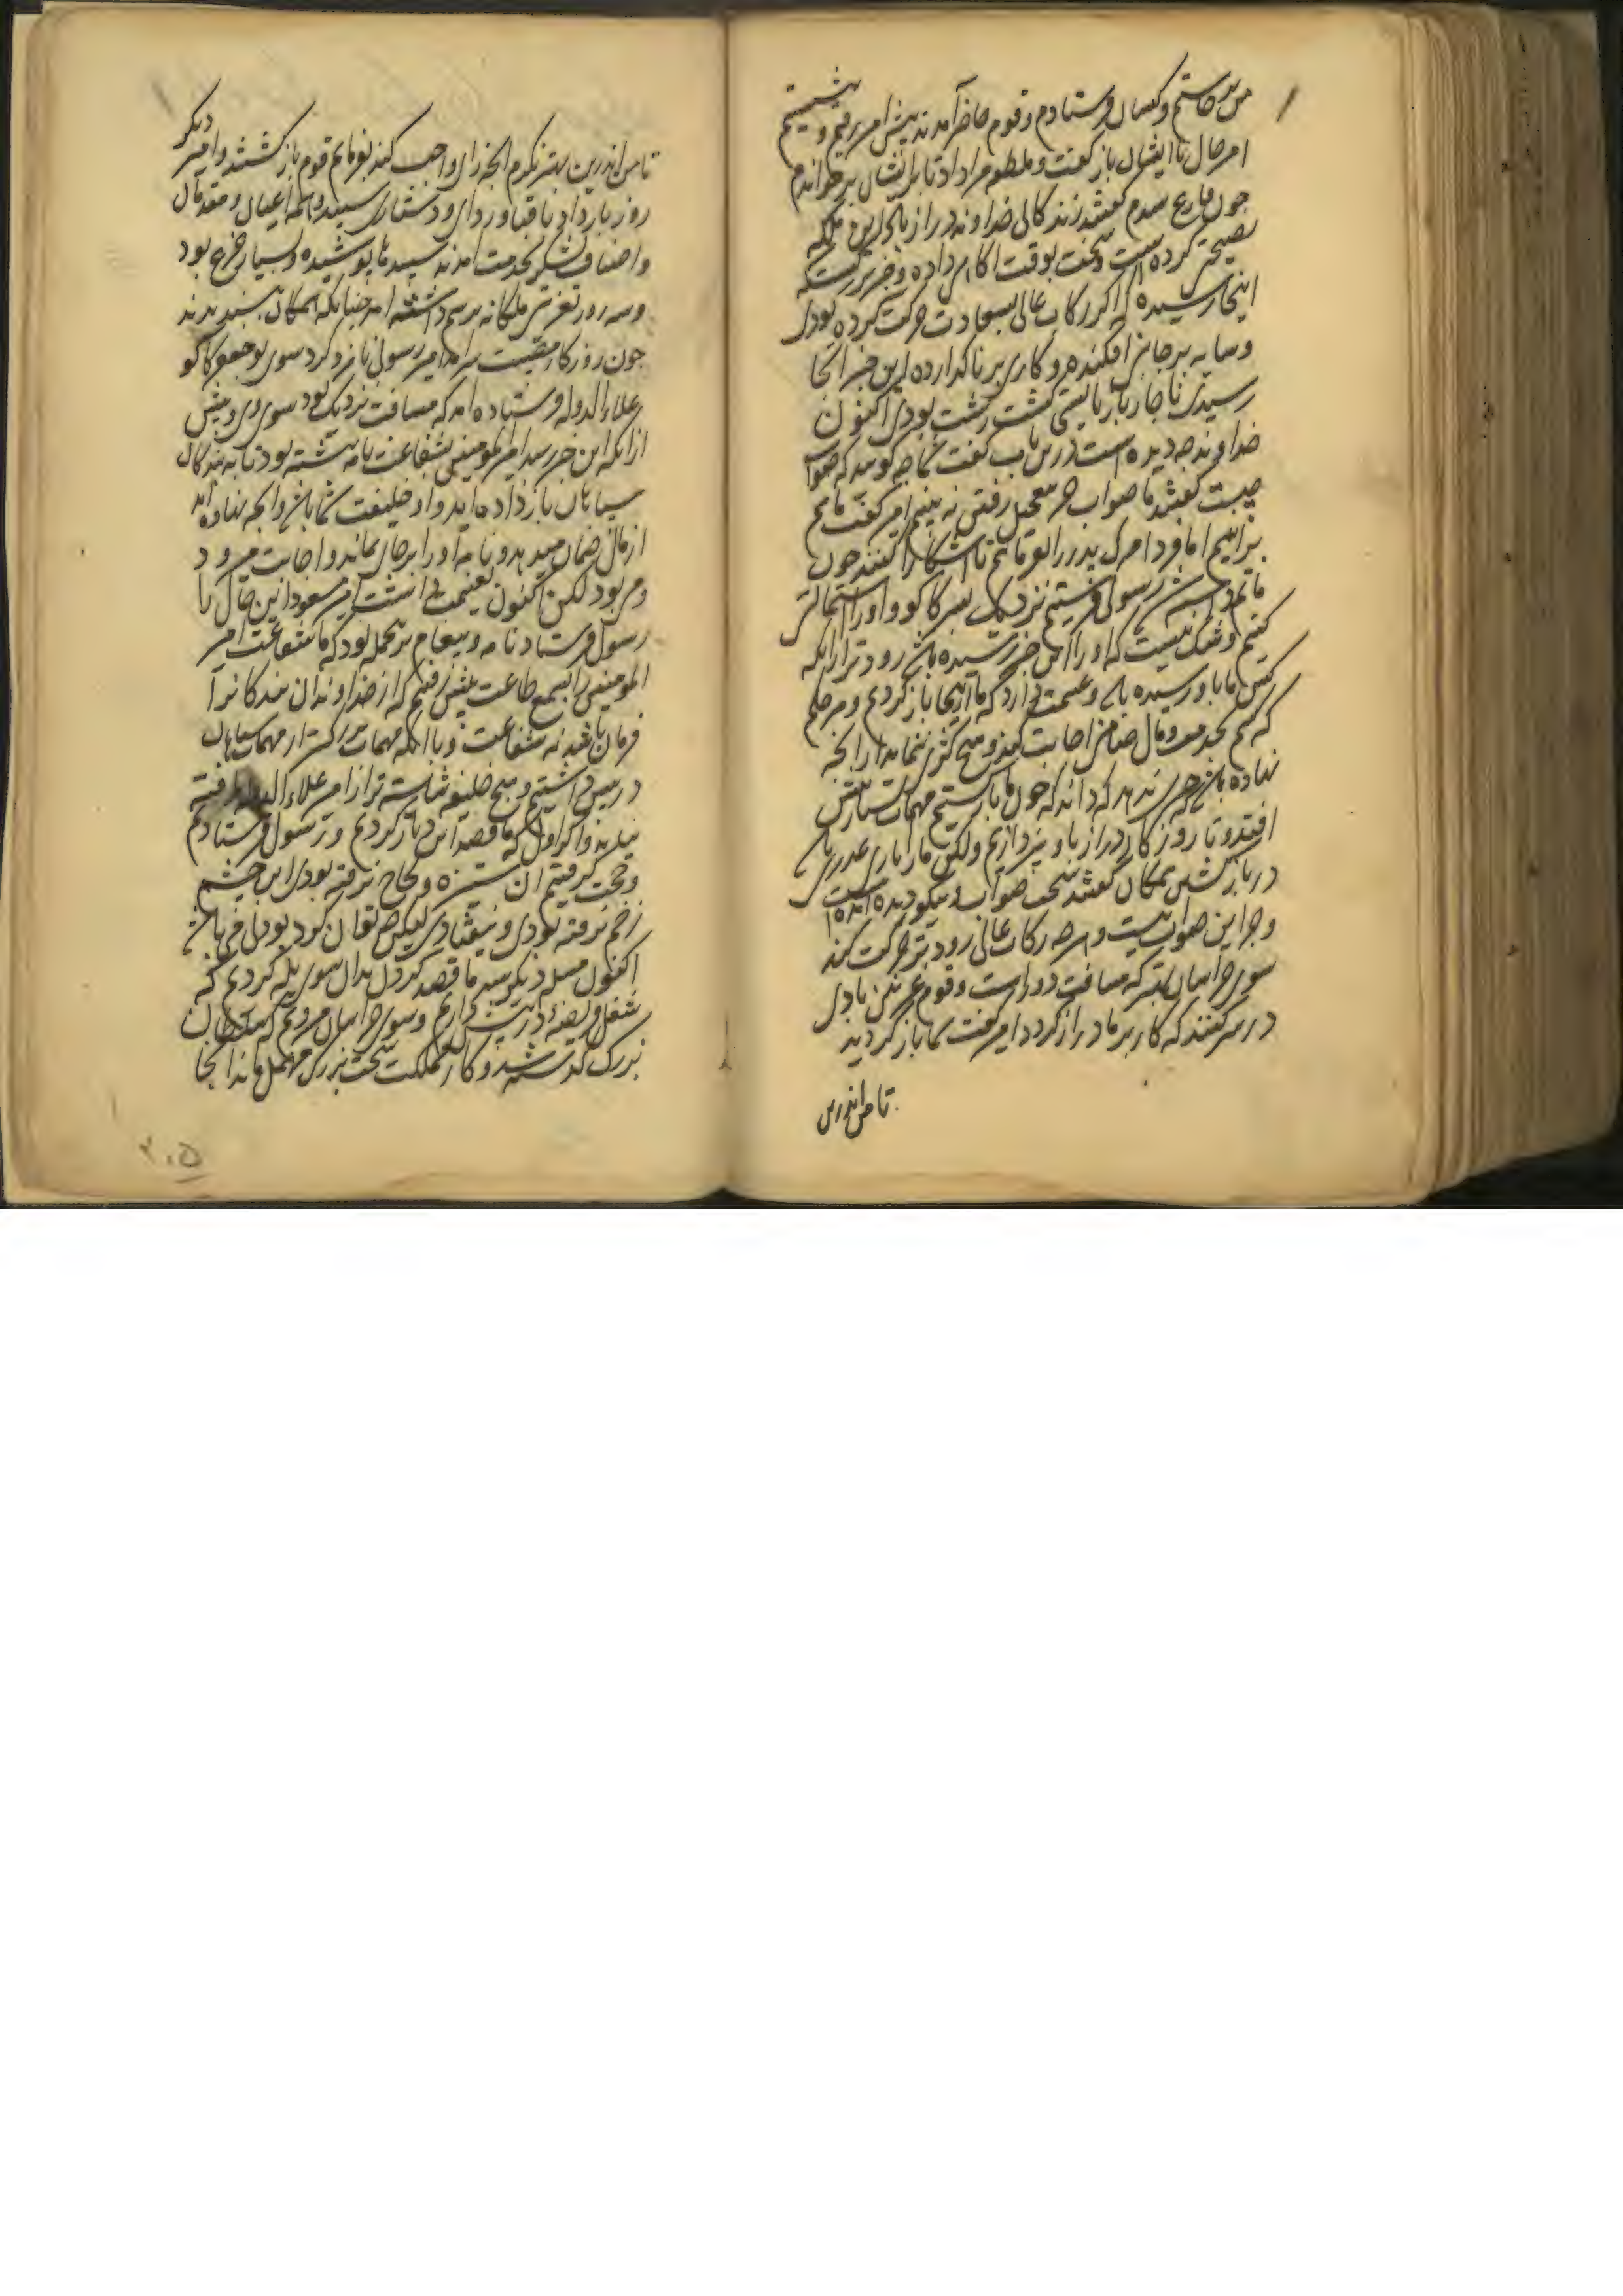 من برخاستم و کسان فرستادم و قوم حاضر آمدند پیش امیر رفتیم و بنشستیم
امیر حال با ایشان باز گفت و ملطفه مرا داد تا بر ایشان برخواندم
چون فارغ شدم گفتند زندگانی خداوند دراز باد این ملکه
نصیحتی کرده است و سخت بوقت آگاهی داده و خیر بزرگست که
اینجا رسیده که اگر رکاب عالی بسعادت حرکت کرده بودی
و سایه بر جانبی افکنده و کاری برناگذارده این خبر آنجا
رسیدی ناچار باز بایستی گشت زشت بودی اکنون
خداوند چه دیده است درین باب گفت شما چه گویید که صواب
چیست گفتند ما صواب جز تعجیل رفتن نه بینیم امیر گفت ما هم
برانیم اما فردا مرگ پدر را بفرمائیم تا آشکارا کنند چون
ماتم داشته شد رسولی فرستیم نزدیک پسر کاکو و او را استمالتی
کنیم و شک نیست که او را این خبر رسیده باشد زودتر از آنکه
کس ما باو رسیده باشد و غنیمت دارد که ما ازینجا بازگردیم و هر حکم
که کنیم بخدمت و مال ضامنی اجابت کند و هیچ کژی ننماید از آنچه
نهاده باشد چیزی ندهد که داند که چون ما بازگشتیم مهمات بسیار پیش
افتد و تا روزگار دراز باو نپردازیم ولکن ما را باری عذری باشد
در بازگشتن همگان گفتند سخت صواب و نیکو دیده آمده است
و جز این صواب نیست و هرچه رکاب عالی زودتر حرکت کند
سوی خراسان بهتر که مسافت دور است و قوم غزنین بادی
در سر کنند که کار بر ما دراز گردد امیر گفت شما بازگردید
تا من اندرین
تا من اندرین بهتر نگرم آنچه رای واجب کند بفرمایم قوم بازگشتند و امیر دیگر
روز بار داد با قبا و ردای و دستاری سپید و همه اعیان و مقدمان
و اصناف لشکر بخدمت آمدند سپیدها پوشیده و بسیار جزع بود
و سه روز تعزیتی ملکانه برسم داشته آمد چنانکه همگان بپسندیدند
چون روزگار مصیبت سرآمد امیر رسولی نامزد کرد سوی بو جعفر کاکو
علاء الدوله و فرستاده آمد که مسافت نزدیک بود سوی وی و پیش
از آنکه این خبر رسد امیر المومنین بشفاعت نامه نبشته بود تا به بندگان
سپاهان باز داده آید و او خلیفت شما باشد و آنچه نهاده آید
از مال ضمان میدهد و نامه آور بر جای بمانده و اجابت می بود
و می نبود لکن اکنون بغنیمت داشت امیر مسعود این حال را
رسول فرستاد نامه و پیغام برین جمله بود که ما شفاعت امیر
المومنین را بسمع طاعت پیش رفتیم که از خداوندان بندگانرا
فرمان باشد نه شفاعت و با آنکه مهمات بزرگتر از مهمات سپاهان
در پیش داشتیم و هیچ خلیفه شایسته تر از امیر علاء الدوله یافته
نیاید و اگر اول که ما قصد این دیار کردیم و رسول فرستادیم
و حجت گرفتیم آن ستیزه و لجاج نرفته بودی این چشم
زخم نرفته بودی و نیفتادی لیکن چه توان کرد بودنی می باشد
اکنون مسئله دیگر شد ما قصد کردن بدان سوی یله کردیم که
شغل فریضه در پیش داریم و سوی خراسان می رویم که سلطان
بزرگ گذشته شد و کار مملکت سخت بزرگ مهمل ماند آنجا
۲۰۵